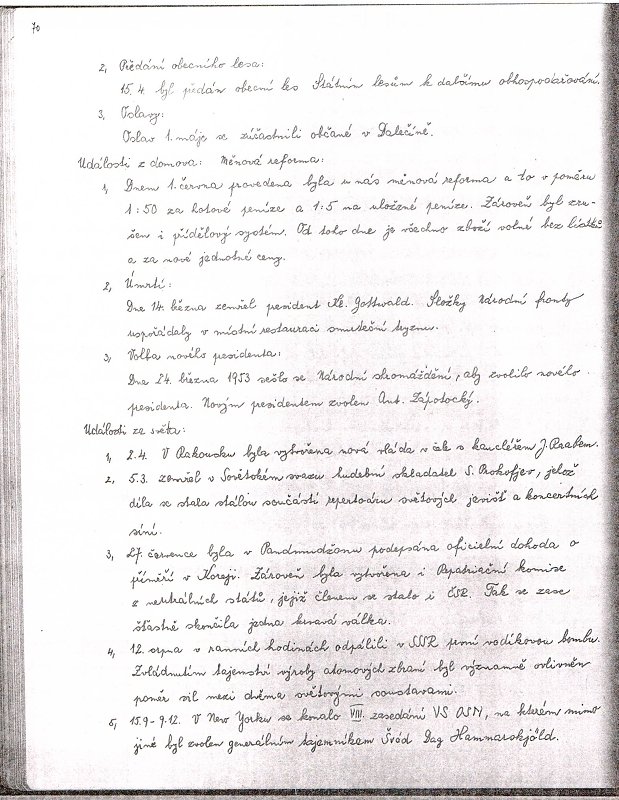 70
2, Předání obecního lesa:
15.4 byl předán obecní les Státním lesům k dalšímu obhospodařování.
3, Oslavy:
Oslav 1. máje se zúčastnili občané v Dalečíně.
Události z domova: Měnová reforma:
1, Dnem 1. června provedena byla u nás měnová reforma a to v poměru
1:50 za hotové peníze a 1:5 na uložené peníze. Zároveň byl zru-
šen i přídělový systém. Od toho dne je všechno zboží volné bez lístků
a za nové jednotné ceny.
2, Úmrtí:
Dne 14. března zemřel president Kl. Gottwald. Složky Národní fronty
uspořádaly v místní restauraci smuteční tryznu.
3, Volba nového presidenta:
Dne 24. března 1953 sešlo se Národní shromáždění, aby zvolilo nového
presidenta. Novým presidentem zvolen Ant. Zápotocký.
Události ze světa:
1, 2.4. V Rakousku byla vytvořena nová vláda v čele s kancléřem J. Raabem.
2, 5.3. zemřel v Sovětském svazu hudební skladatel S. Prokofjev, jehož
díla se stala stálou součástí repertoáru světových jevišť a koncertních
síní.
3, 27. července byla v Pandmudžonu podepsána oficielní dohoda o
příměří v Koreji. Zároveň byla vytvořena i Repatriační komise
z neutrálních států, jejíž členem se stalo i ČSR. Tak se zase
šťastně skončila jedna krvavá válka.
4, 12. srpna v ranních hodinách odpálili v SSSR první vodíkovou bombu.
Zvládnutím tajemství výroby atomových zbraní byl významně ovlivněn
poměr sil mezi dvěma světovými soustavami.
5, 15.9-9.12. V New Yorku se konalo VIII. zasedání VS OSN, na kterém mimo
jiné byl zvolen generálním tajemníkem Švéd Dag Hammarskjöld.